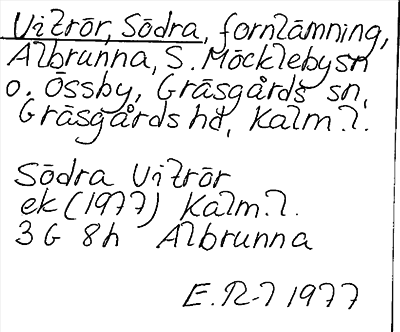 Vitrör, Södra, fornlämning,
Albrunna, S. Möckleby sn
o. Össby, Gräsgårds sn,
Gräsgårds hd, Kalm.l.
Södra Vitrör
ek (1977) Kalm.l.
3 G 8h Albrunna
1977